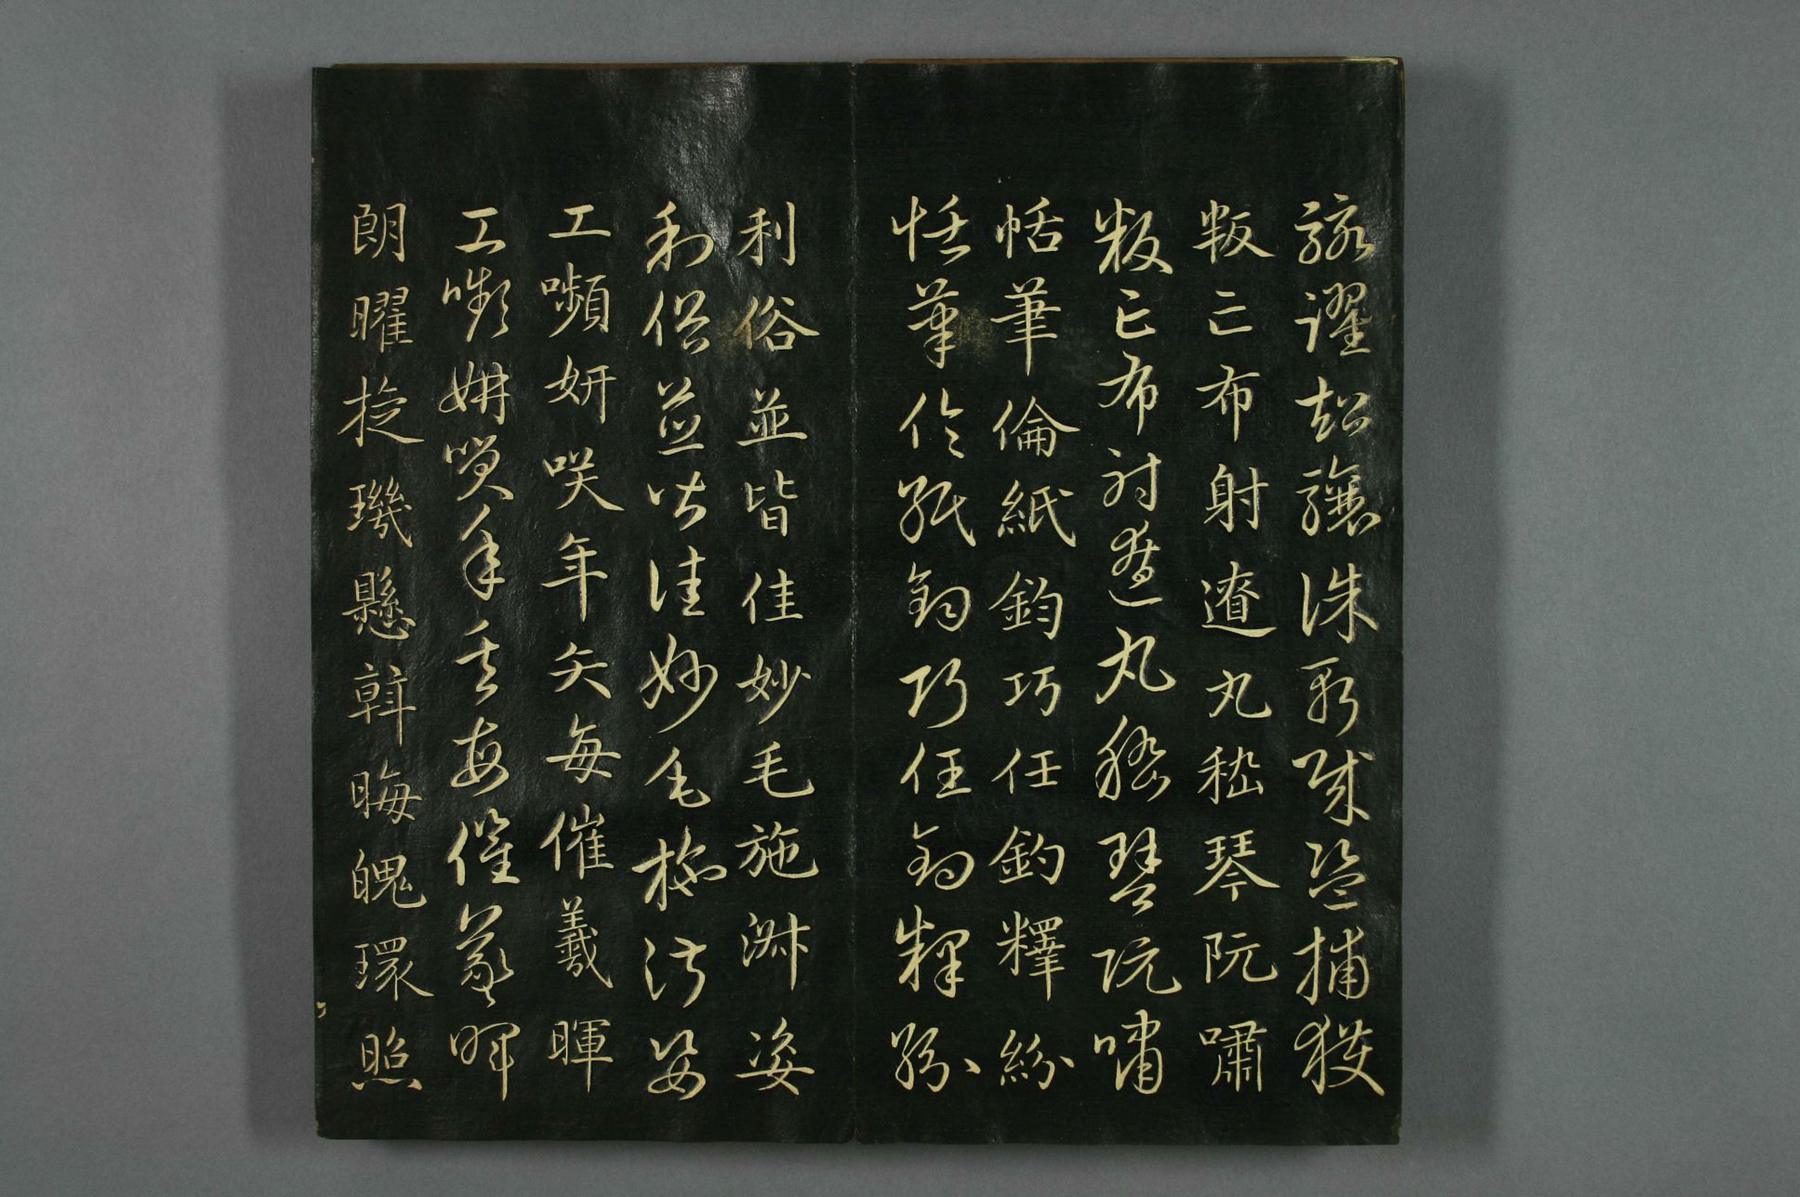 駭躍超驤誅斬賊盜捕獲
叛亡布射遼丸嵇琴阮嘯
叛亡布射遼丸嵇琴阮嘯
恬筆倫紙鈞巧任釣釋紛
恬筆倫紙鈞巧任釣釋紛
利俗並皆佳妙毛施淑姿
利俗並皆佳妙毛施淑姿
工嚬妍咲年矢每催羲暉
工嚬妍咲年矢每催羲暉
朗曜旋璣懸斡晦魄環照